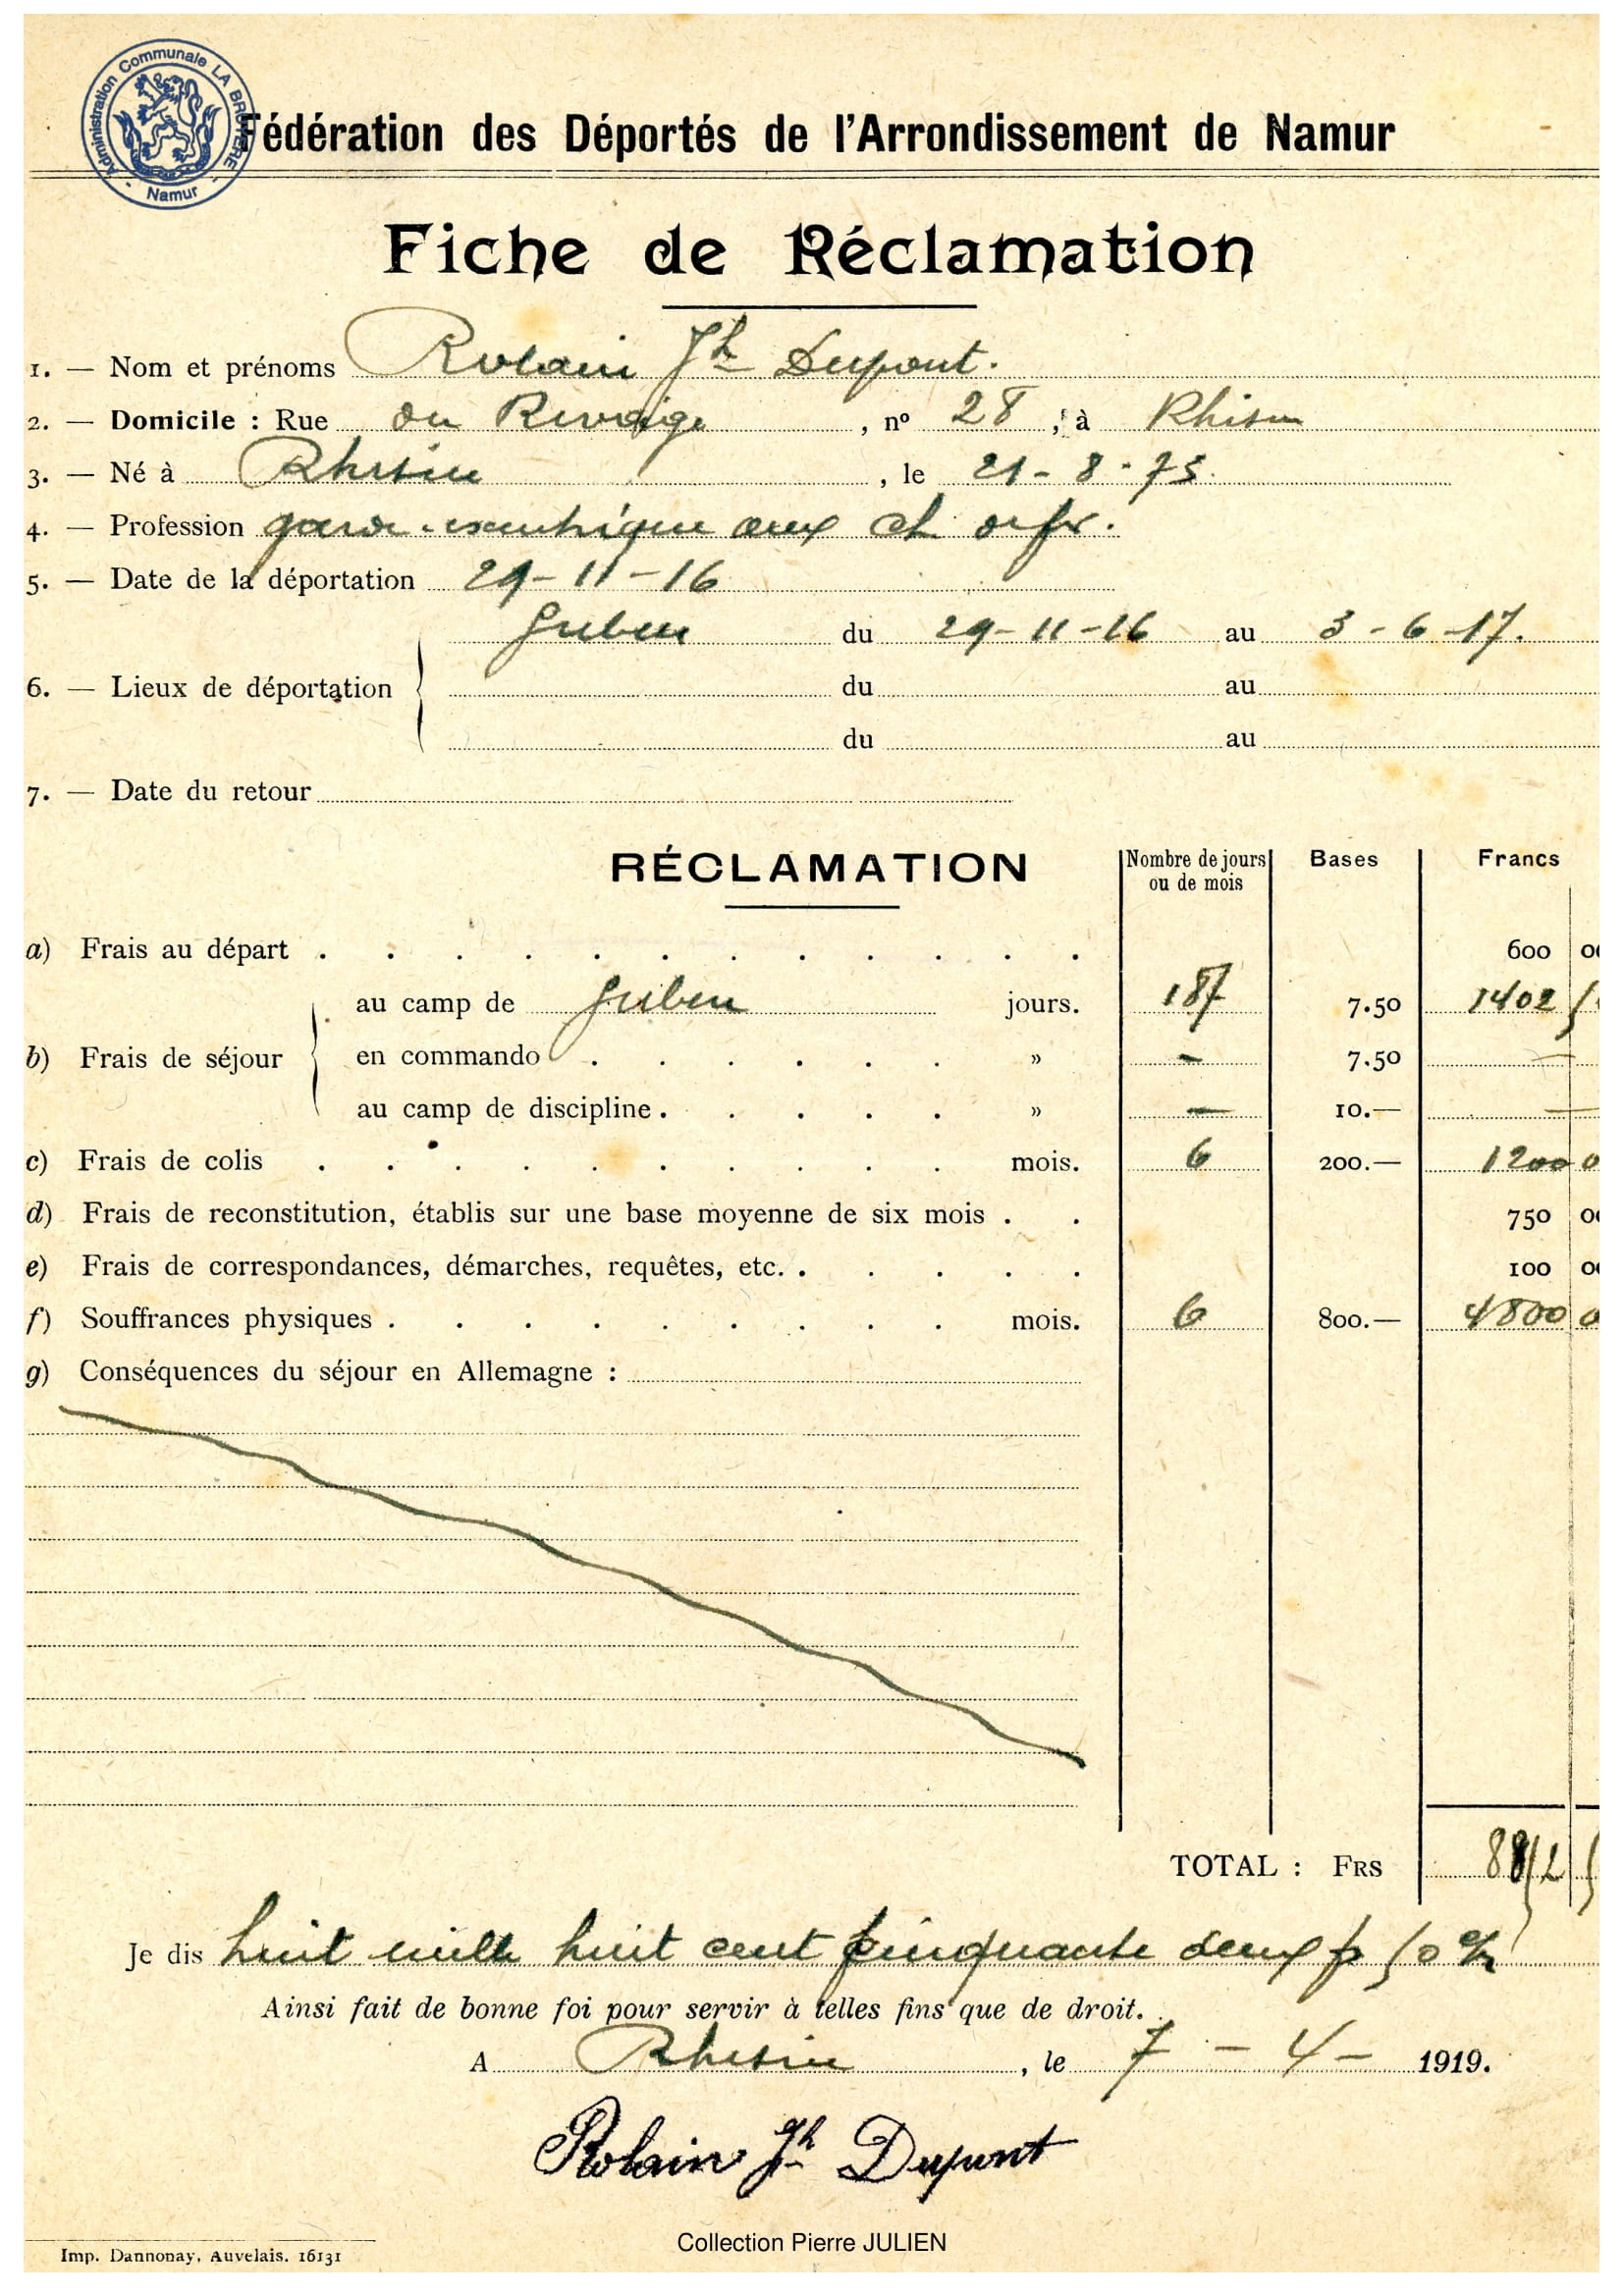 Administration Communale LA BRUYERE - Namur -
Fédération des Déportés de l'Arrondissement de Namur
Fiche de Réclamation
1. — Nom et prénoms Rolain Jh Dupont.
2. — Domicile : Rue du Rivage, nº 28, à Rhisne
3. — Né à Rhisne, le 21-8-73.
4. — Profession aux ch. de fer.
5. — Date de la déportation 29-11-16
Guben du 29-11-16 au 3-6-17.
6. — Lieux de déportation du au
du au
7. — Date du retour
RÉCLAMATION Nombre de jours ou de mois Bases Francs
a) Frais au départ 600 00
au camp de Guben jours. 187 7.50 1402
b) Frais de séjour en commando » — 7.50 —
au camp de discipline » — 10.— —
c) Frais de colis mois. 6 200.— 1200 0
d) Frais de reconstitution, établis sur une base moyenne de six mois 750 00
e) Frais de correspondances, démarches, requêtes, etc. 100 00
f) Souffrances physiques mois. 6 800.— 4800 0
g) Conséquences du séjour en Allemagne :
TOTAL : FRS 8852
Je dis huit mille huit cent cinquante deux fr 50 c
Ainsi fait de bonne foi pour servir à telles fins que de droit.
A Rhisne, le 7 - 4 - 1919.
Rolain Jh Dupont
Collection Pierre JULIEN
Imp. Dannonay, Auvelais. 16131